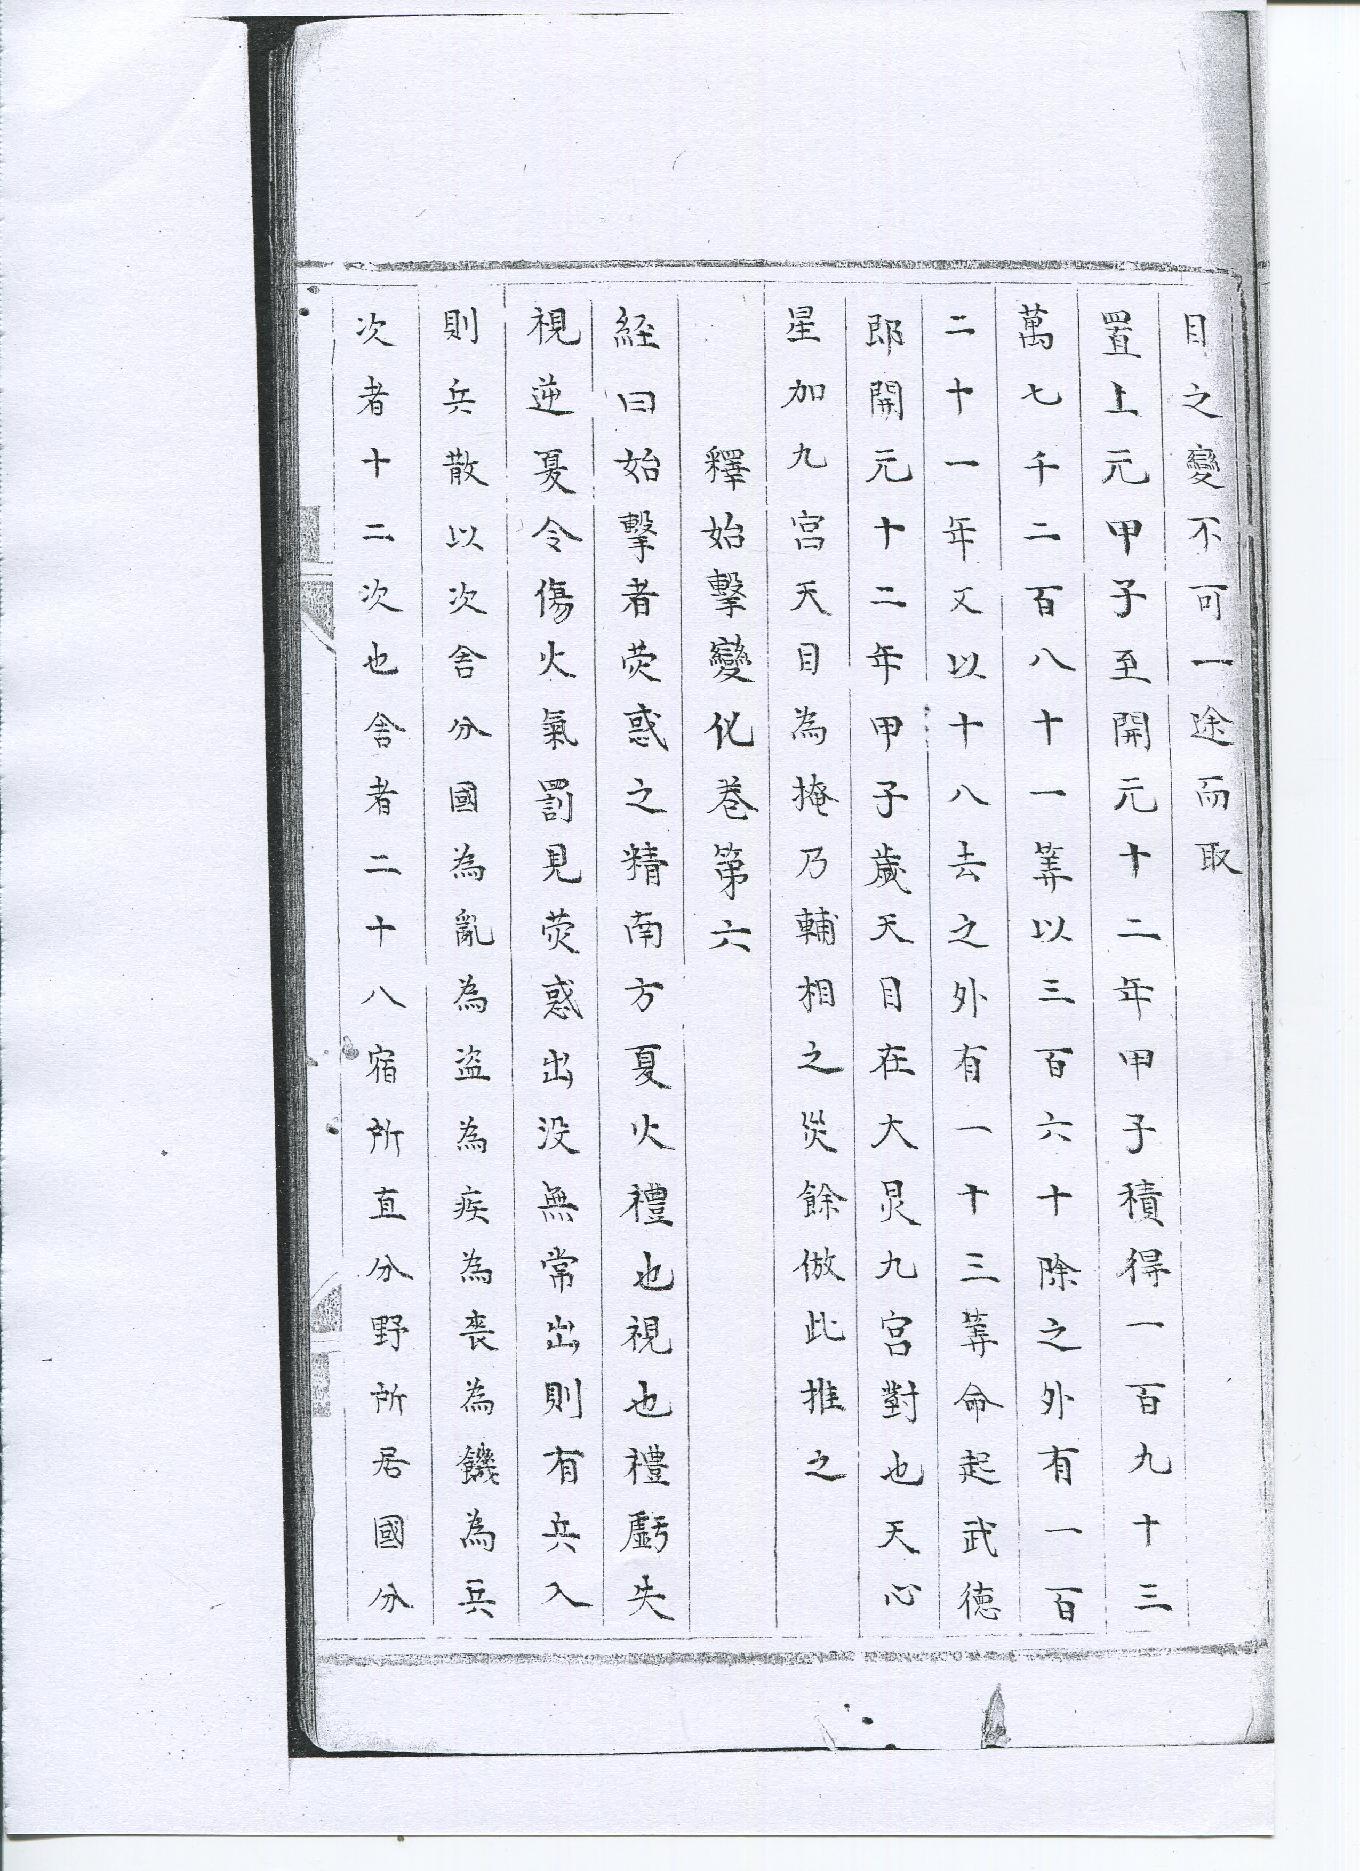 目之變不可一途而取
置上元甲子至開元十二年甲子積得一百九十三
萬七千二百八十一筭以三百六十除之外有一百
二十一年又以十八去之外有一十三筭命起武德
郎開元十二年甲子歲天目在大炅九宫對也天心
星加九宫天目為掩乃輔相之災餘倣此推之
釋始擊變化卷第六
経曰始擊者荧惑之精南方夏火禮也視也禮虧失
視逆夏令傷火氣罰見荧惑出沒無常出則有兵入
則兵散以次舍分國為亂為盗為疾為喪為饑為兵
次者十二次也舍者二十八宿所直分野所居國分